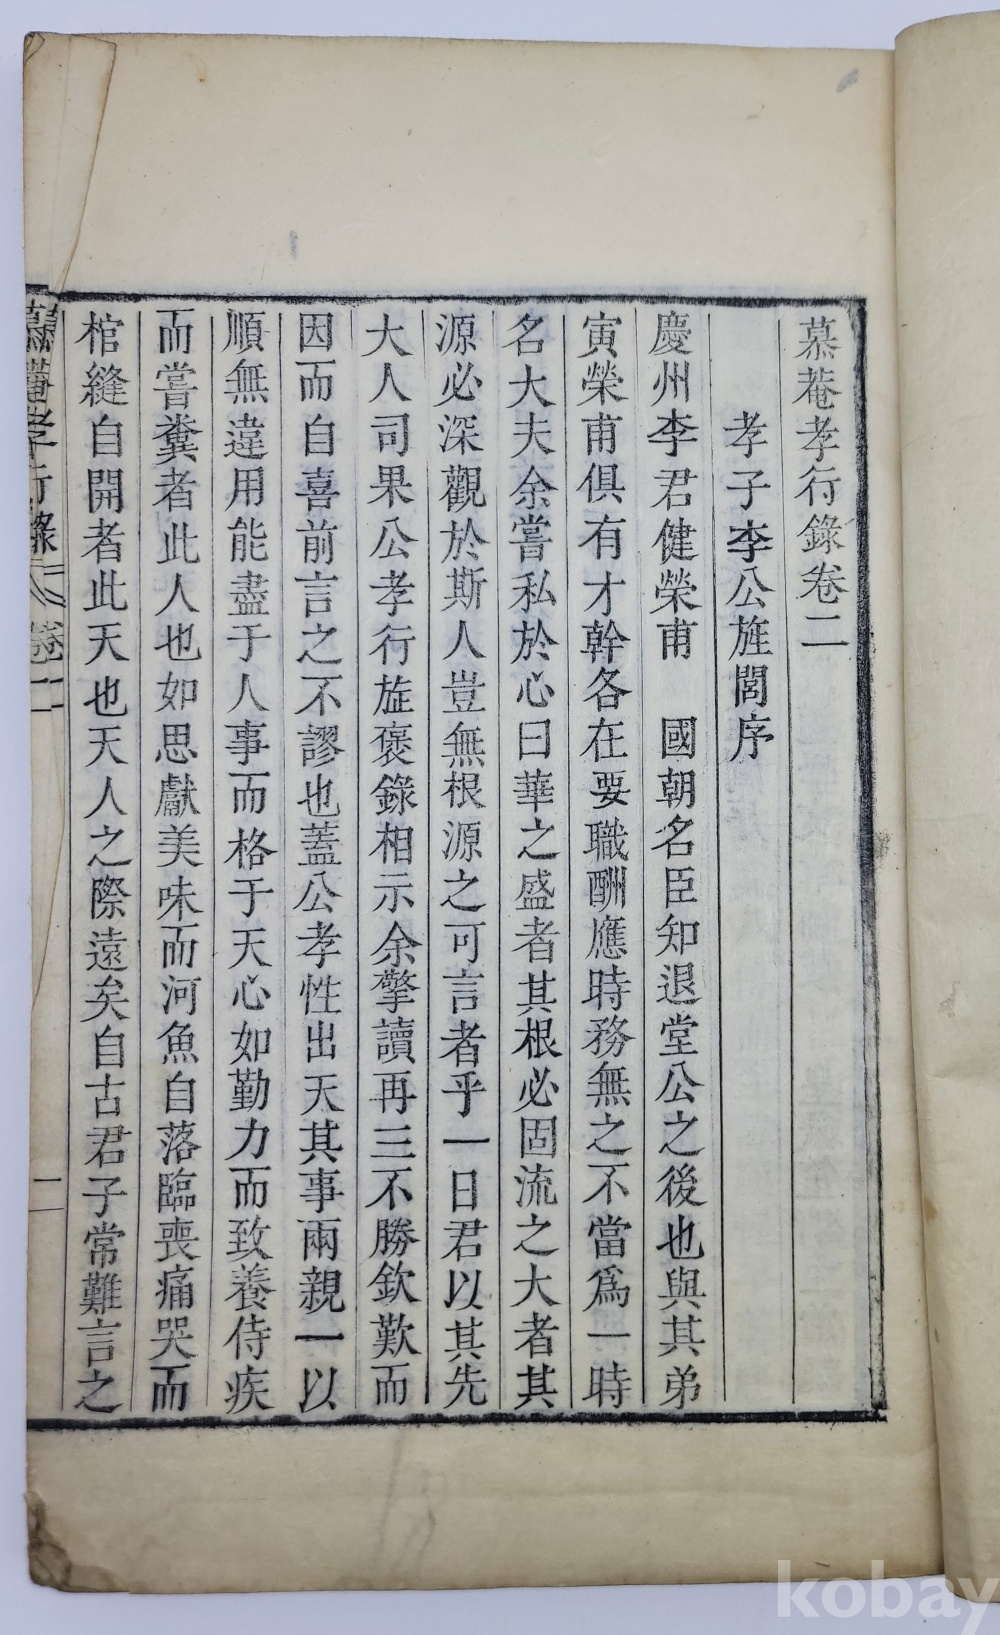 慕菴孝行錄卷二
孝子李公旌閭序
慶州李君健榮甫 國朝名臣知退堂公之後也與其弟
寅榮甫俱有才幹各在要職酬應時務無之不當爲一時
名大夫余嘗私於心曰華之盛者其根必固流之大者其
源必深觀於斯人豈無根源之可言者乎一日君以其先
大人司果公孝行旌褒錄相示余擎讀再三不勝欽歎而
因而自喜前言之不謬也蓋公孝性出天其事兩親一以
順無違用能盡于人事而格于天心如勤力而致養侍疾
而嘗糞者此人也如思獻美味而河魚自落臨喪痛哭而
棺縫自開者此天也天人之際遠矣自古君子常難言之
慕菴孝行錄 卷二 一
kobay